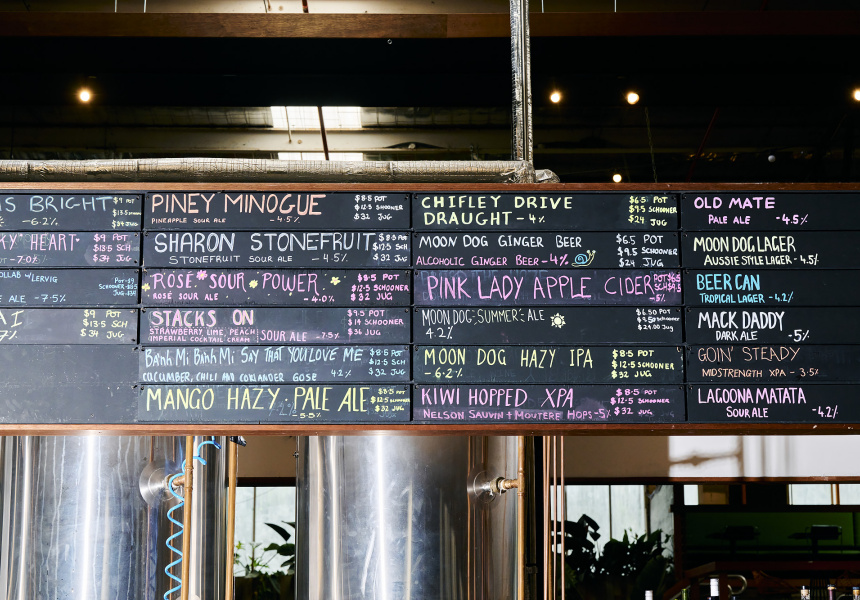 S BRIGHT
-6.2%
$9 POT
$34 JUG
KY HEART
-7.0%
$9 POT
$13.5 SCH
$34 JUG
COLLAB W/LERVIG
ALE -7.5%
A I
7%
$9 POT
$13.5 SCH
$34 JUG
PINEY MINOGUE
PINEAPPLE SOUR ALE -4.5%
$8.5 POT
$12.5 SCHOONER
$32 JUG
SHARON STONEFRUIT
STONEFRUIT SOUR ALE -4.5%
$32 JUG
ROSÉ SOUR POWER
ROSÉ SOUR ALE -4.0%
$8.5 POT
$12.5 SCHOONER
$32 JUG
STACKS ON
STRAWBERRY, LIME, PEACH
IMPERIAL COCKTAIL CREAM SOUR ALE -7.5%
$9.5 POT
$14 SCHOONER
$36 JUG
BÁNH MÌ BÁNH MÌ SAY THAT YOU LOVE ME
CUCUMBER, CHILI AND CORIANDER GOSE 4.2%
$8.5 POT
$12.5 SCH
$32 JUG
MANGO HAZY PALE ALE
-5.5%
$8.5 POT
$12.5 SCHOONER
$32 JUG
CHIFLEY DRIVE
DRAUGHT -4%
$6.5 POT
$9.5 SCHOONER
$24 JUG
MOON DOG GINGER BEER
ALCOHOLIC GINGER BEER -4%
$6.5 POT
$9.5 SCHOONER
$24 JUG
PINK LADY APPLE CIDER
-5%
MOON DOG "SUMMER" ALE
4.2%
$6.50 POT
$9.50 SCHOONER
$24.00 JUG
MOON DOG HAZY IPA
-6.2%
$8.5 POT
$12.5 SCH
$32 JUG
KIWI HOPPED XPA
NELSON SAUVIN + MOUTERE HOPS -5%
$8.5 POT
$12.5 SCHOONER
$32 JUG
OLD MATE
PALE ALE -4.5%
MOON DOG LAGER
AUSSIE STYLE LAGER -4.5%
BEER CAN
TROPICAL LAGER -4.2%
MACK DADDY
DARK ALE -5%
GOIN' STEADY
MIDSTRENGTH XPA - 3.5%
LAGOONA MATATA
SOUR ALE -4.2%